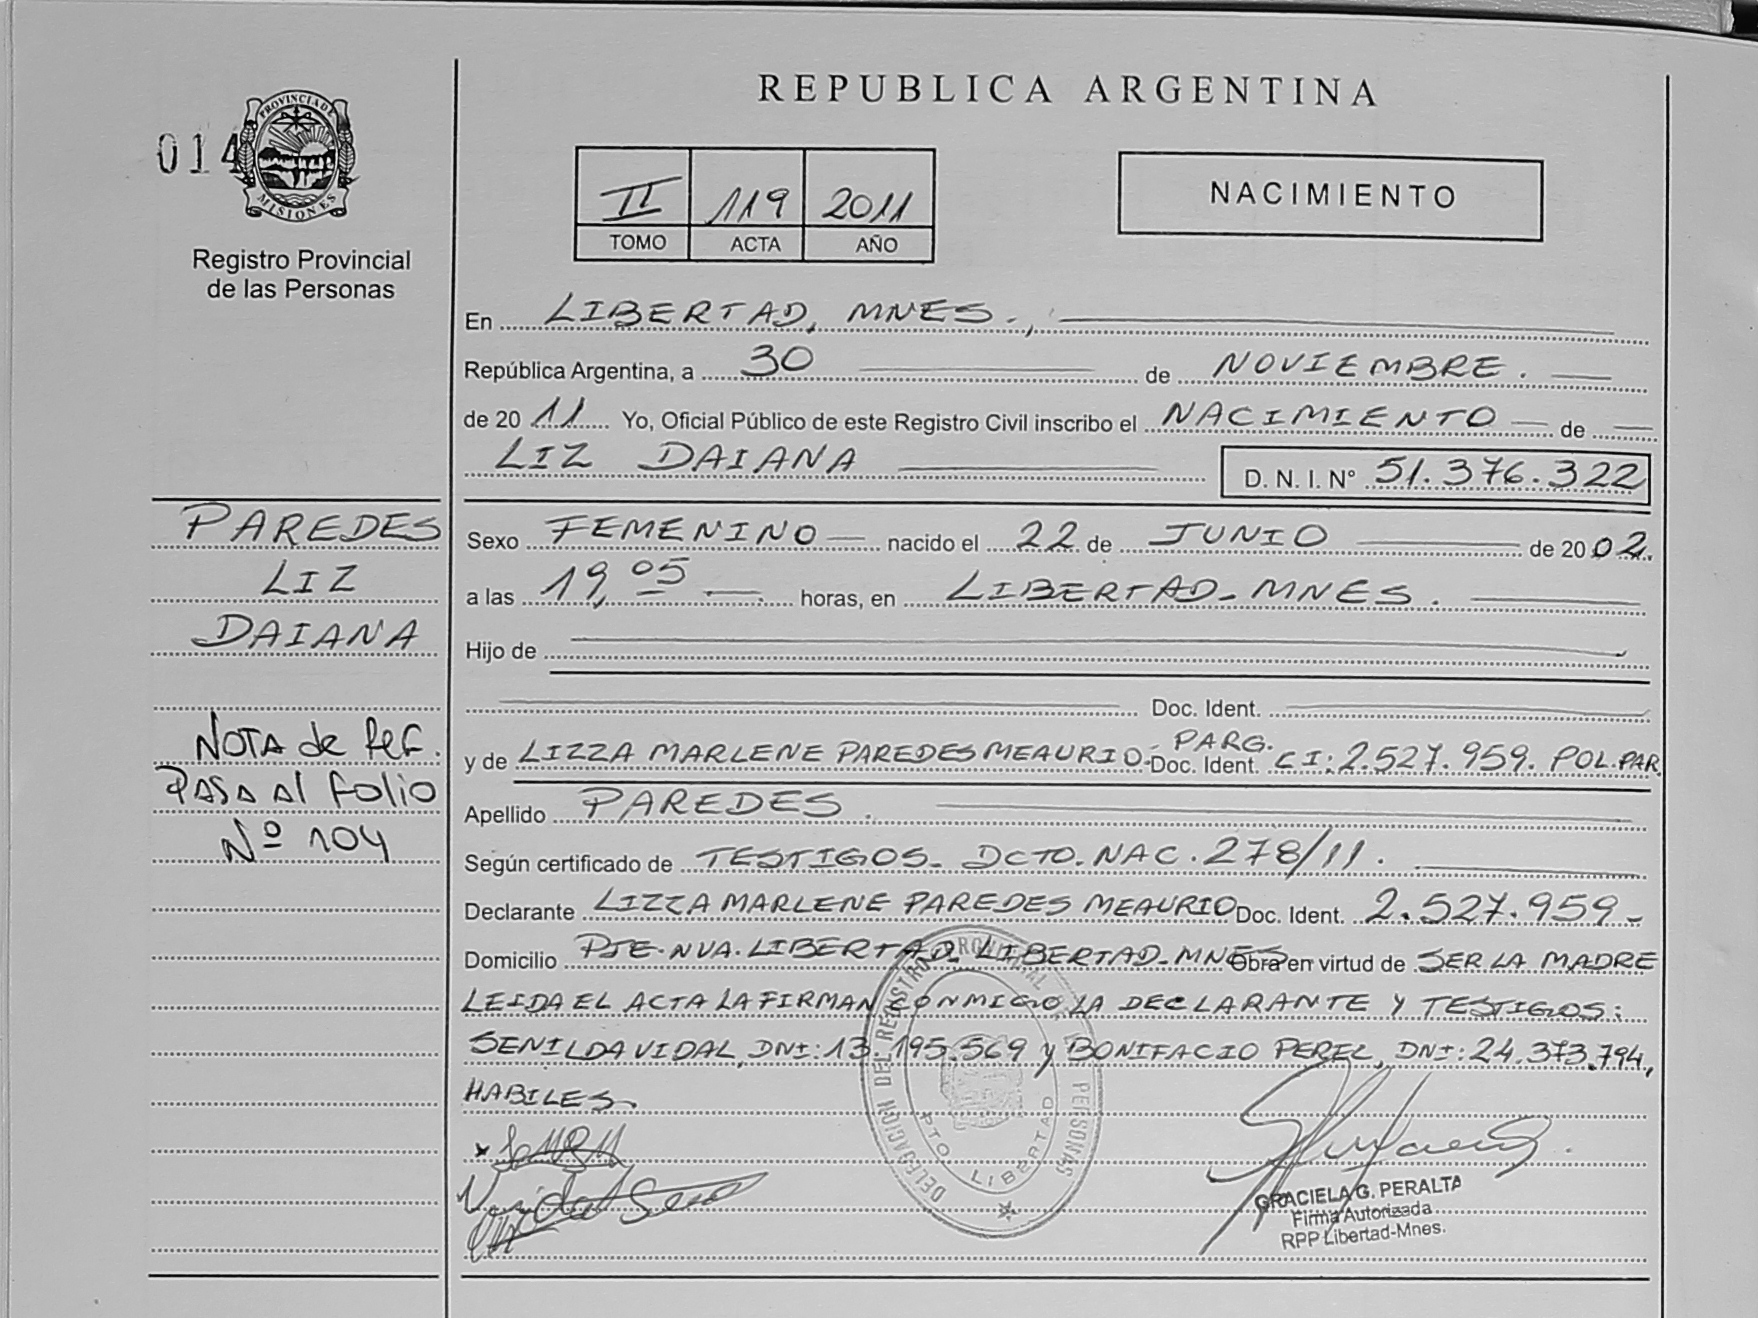 REPUBLICA ARGENTINA
014
PROVINCIA DE
MISIONES
Registro Provincial
de las Personas
II 119 2011
TOMO ACTA AÑO
NACIMIENTO
En LIBERTAD, MNES.,
República Argentina, a 30 de NOVIEMBRE.
de 2011 Yo, Oficial Público de este Registro Civil inscribo el NACIMIENTO de
LIZ DAIANA D. N. I. Nº 51.376.322
PAREDES
LIZ
DAIANA
NOTA de Ref.
PASA Al folio
Nº 104
Sexo FEMENINO nacido el 22 de JUNIO de 2002.
a las 19,05 horas, en LIBERTAD-MNES.
Hijo de
Doc. Ident.
y de LIZZA MARLENE PAREDES MEAURIO- Doc. Ident. PARG. CI: 2.527.959. POL.PAR
Apellido PAREDES.
Según certificado de TESTIGOS- DCTO. NAC. 278/11.
Declarante LIZZA MARLENE PAREDES MEAURIO Doc. Ident. 2.527.959-
Domicilio PJE-NVA. LIBERTAD- LIBERTAD-MNES Obra en virtud de SER LA MADRE
LEIDA EL ACTA LA FIRMAN CONMIGO LA DECLARANTE Y TESTIGOS:
SENILDA VIDAL, DNI: 13.195.569 y BONIFACIO PEREL, DNI: 24.373.794,
HABILES-
DELEGACION DEL REGISTRO PROVINCIAL DE LAS PERSONAS
PTO. LIBERTAD
GRACIELA G. PERALTA
Firma Autorizada
RPP Libertad-Mnes.